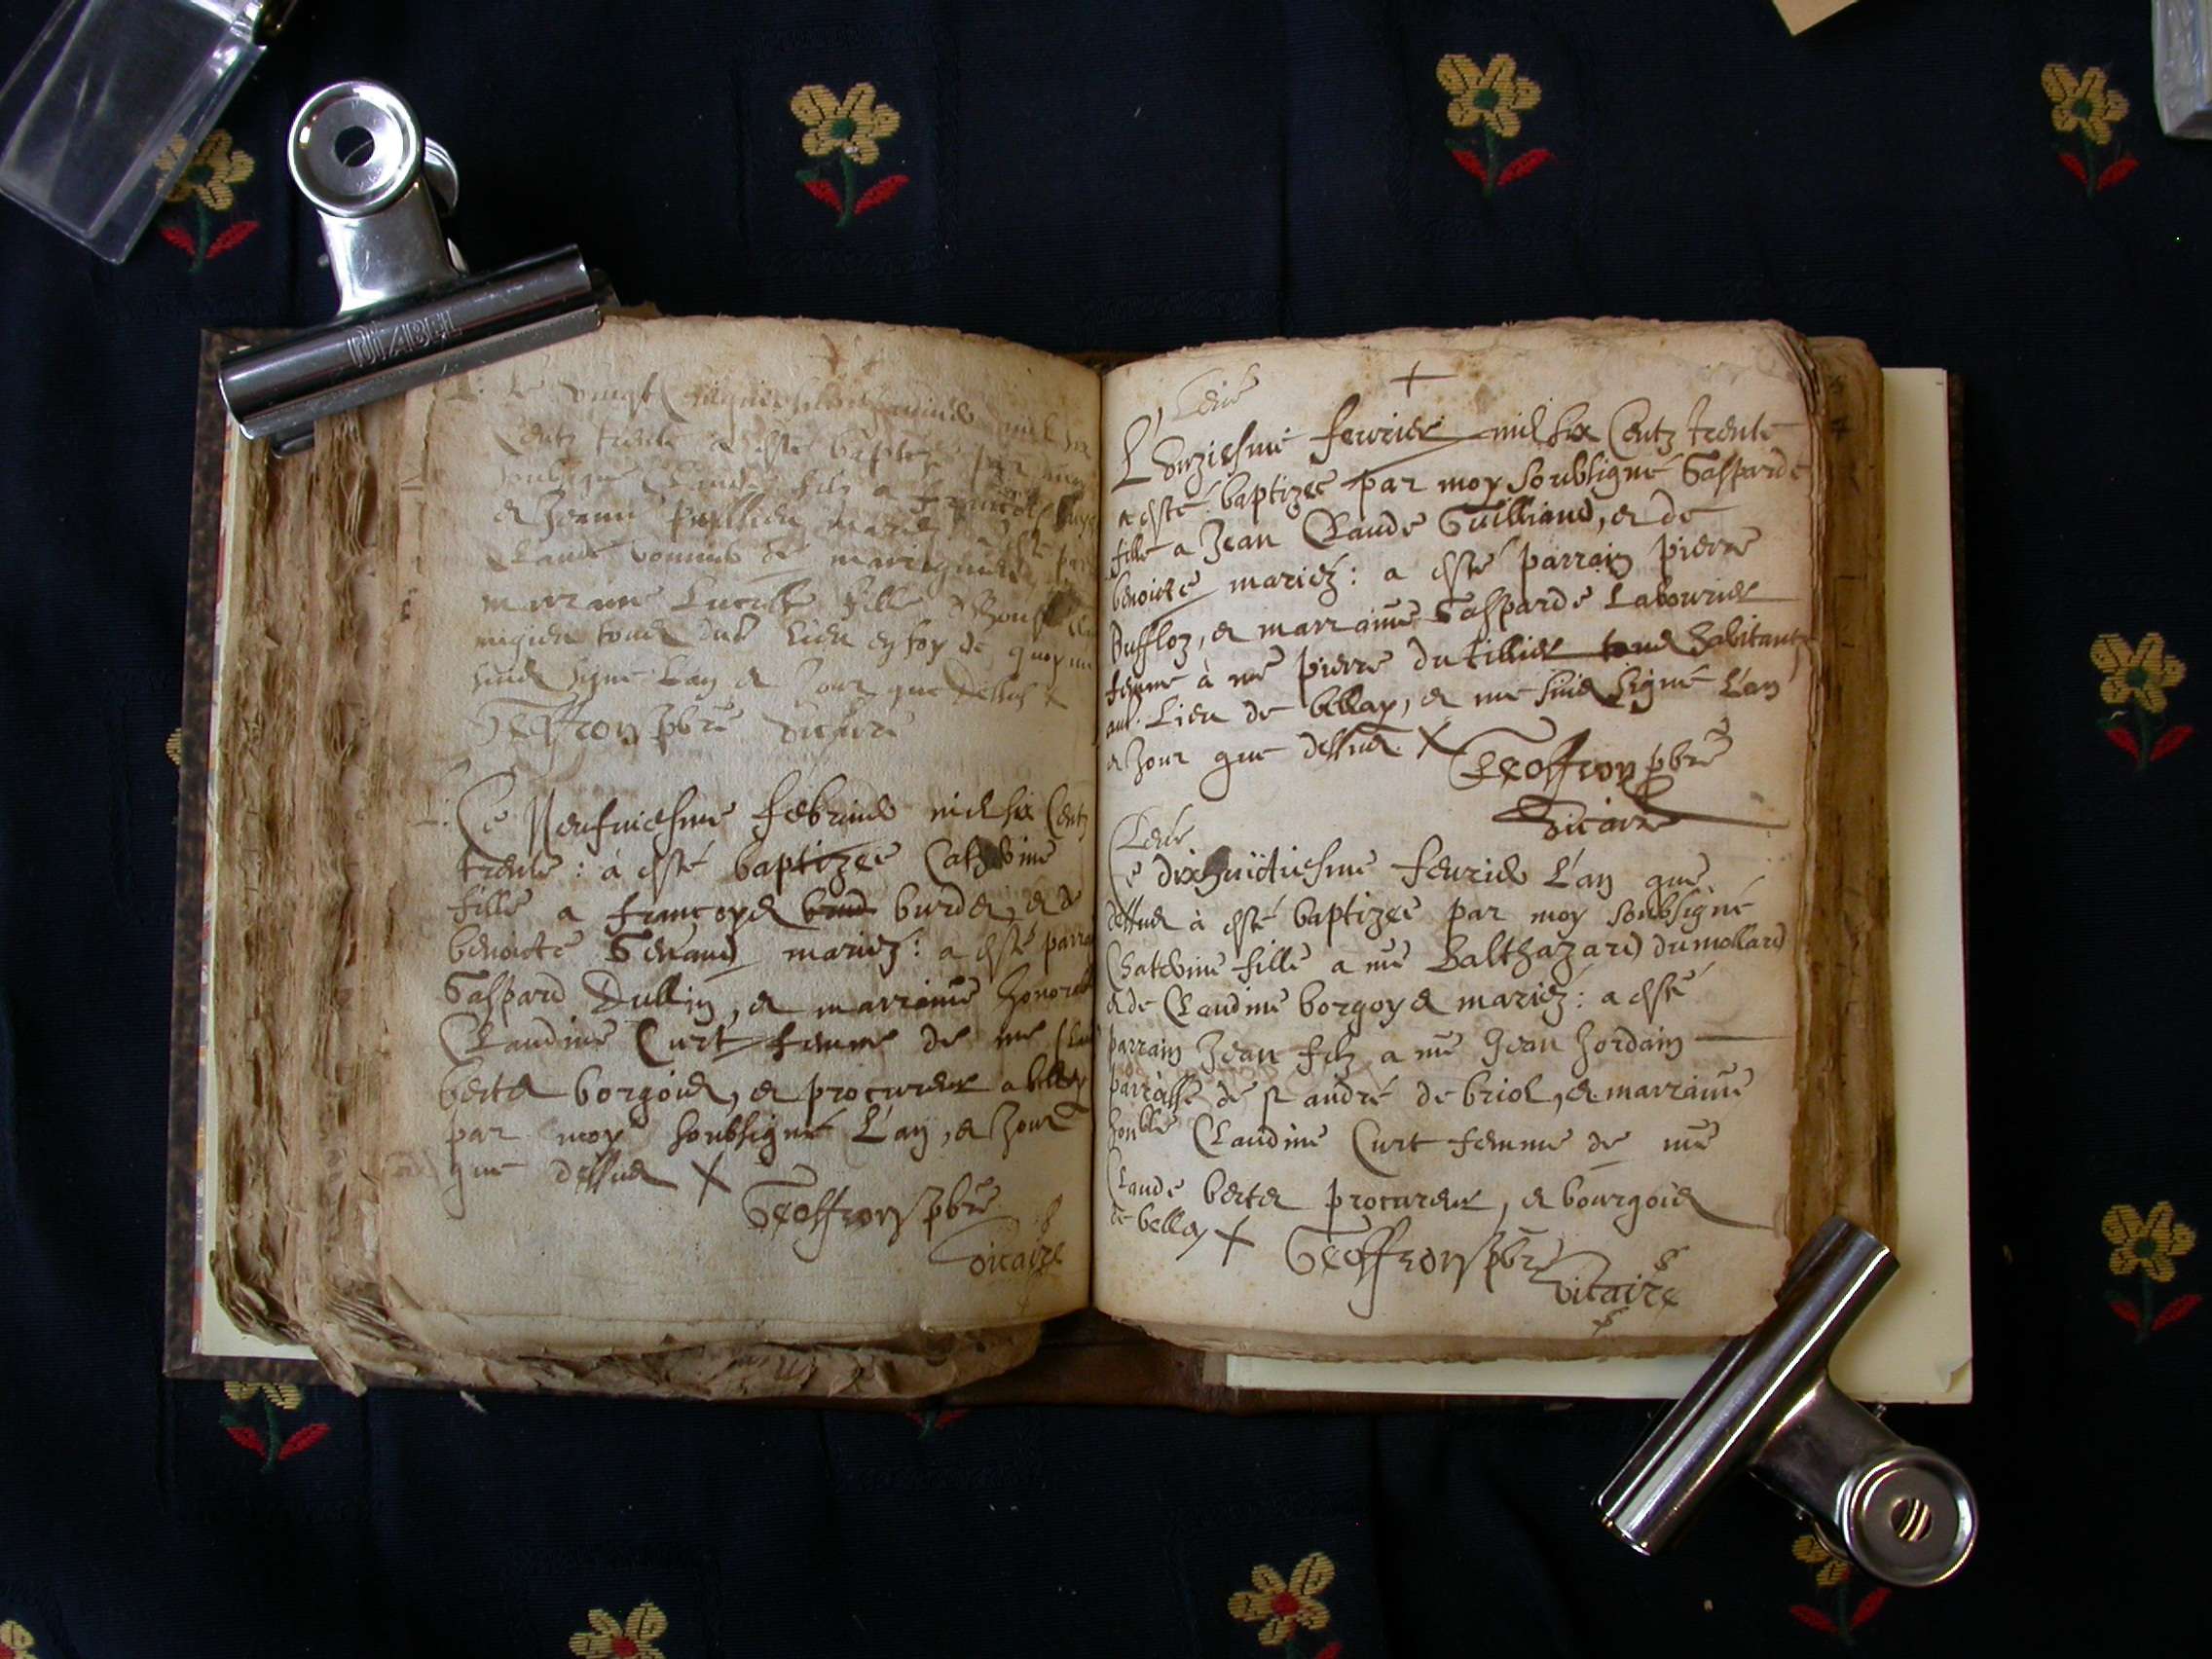 DIABEL
Le vingt
Centz trente a esté baptizé par moy
soubsigné Claude filz a francois
Claude
marraine Lucresse fille
lieu en foy de quoy me
suis signé L'an et Jour que dessus X
Geoffron pbre vicaire
Ce Neufuiesme febrier mil six Centz
trente : à esté baptizee Catherine
fille a francoys burdet, et de
benoicte Genaud mariez : a esté parra
Gaspard Dullin, et marraine honora
Claudine Curt femme de me Clau
bertet borgois, et procureur a belley
par moy soubsigné L'an, et Jour
que dessus X
Geoffron pbre
vicaire
+
L'onziesme feurier mil six Centz trente
a esté baptizee par moy soubsigné Gasparde
fille a Jean Claude Guilliand, et de
benoicte mariez : a esté parrain pierre
Buffloz, et marraine Gasparde Labourier
femme à me pierre du tillier tous habitants
aud. Lieu de bellay, et me suis signé L'an
et Jour que dessus X Geoffron pbre
vicaire
Ce dixhuictiesme feurier L'an que
dessus à esté baptizee par moy soubsigné
Chaterine fille a me Balthazard dumollard
et de Claudine borgoys mariez : a esté
parrain Jean filz a me Jean Jordain
parroisse de st andré de briol, et marraine
honble Claudine Curt femme de me
Claude bertet procureur, et bourgois
de bellay X Geoffron pbre
vicaire